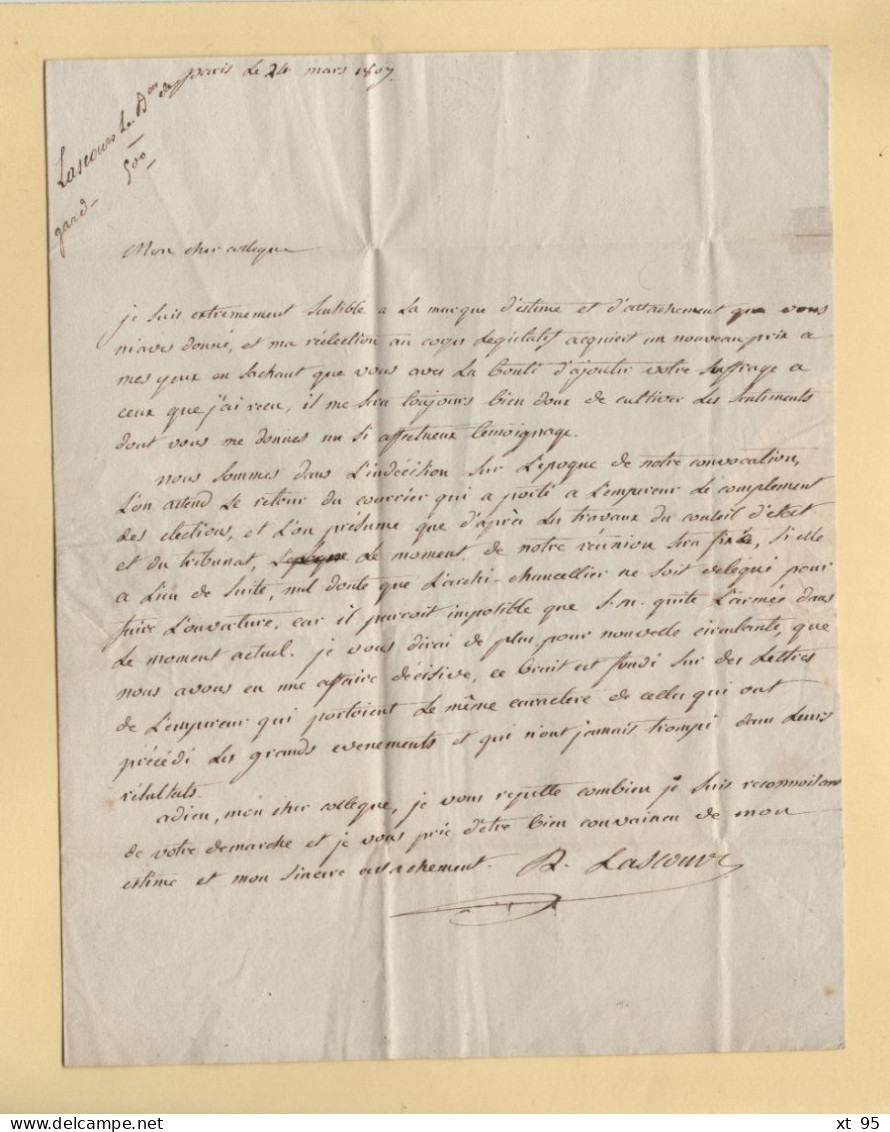 Lascours le Bon de
gard - 500
paris le 24 mars 1807.
Mon cher collegue
je suis extremement sensible a la marque d'estime et d'attachement que vous
m'aves donné, et ma réélection au corps legislatif acquiert un nouveau prix a
mes yeux en sachant que vous aves la bonté d'ajouter votre suffrage a
ceux que j'ai recu, il me sera toujours bien doux de cultiver des sentiments
dont vous me donnes un si affectueux temoignage.
nous sommes dans l'indécision sur l'epoque de notre convocation,
l'on attend le retour du courrier qui a porté a l'empereur le complement
des elections, et l'on présume que d'après les travaux du conseil d'etat
et du tribunat, le moment de notre réunion sera fixée, si elle
a lieu de suite, nul doute que l'archi-chancellier ne soit delegué pour
faire l'ouverture, car il paroit impossible que s. m. quitte l'armée dans
le moment actuel. je vous dirai de plus pour nouvelle circulante, que
nous avons eu une affaire décisive, ce bruit est fondé sur des lettres
de l'empereur qui portoient le même caractere de celles qui ont
précédé les grands evenements et qui n'ont jamais trompé dans leurs
résultats.
adieu, mon cher collegue, je vous repette combien je suis reconnoissant
de votre demarche et je vous prie d'être bien convaincu de mon
estime et mon sincere attachement. R. Lascours
xt 95